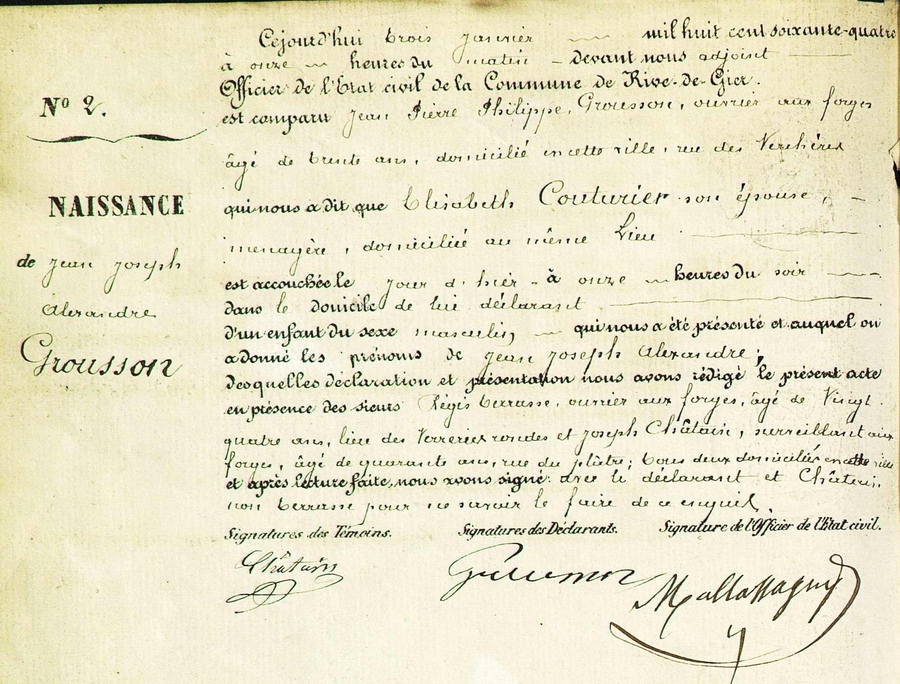 Cejourd'hui trois janvier mil huit cent soixante-quatre
à onze heures du matin devant nous adjoint
Officier de l'Etat civil de la Commune de Rive-de-Gier.
est comparu Jean Pierre Philippe Grousson, ouvrier aux forges
âgé de trente ans, domicilié en cette ville, rue des Verchères
qui nous a dit que Elisabeth Couturier son épouse,
ménagère, domiciliée au même Lieu
est accouchée le jour d'hier à onze heures du soir
dans le domicile de lui déclarant
d'un enfant du sexe masculin qui nous a été présenté et auquel on
a donné les prénoms de Jean Joseph Alexandre;
desquelles déclaration et présentation nous avons rédigé le présent acte
en présence des sieurs Régis terrasse, ouvrier aux forges, âgé de Vingt
quatre ans, lieu des Verreries rondes et Joseph Châtain, surveillant aux
forges, âgé de quarante ans, rue du plâtre; tous deux domiciliés en cette ville
et après lecture faite, nous avons signé avec le déclarant et Châtain,
non terrasse pour ne savoir le faire de ce enquis.
N° 2.
NAISSANCE
de Jean Joseph
Alexandre
Grousson
Signatures des Témoins.
Signatures des Déclarants.
Signature de l'Officier de l'Etat civil.
Châtain